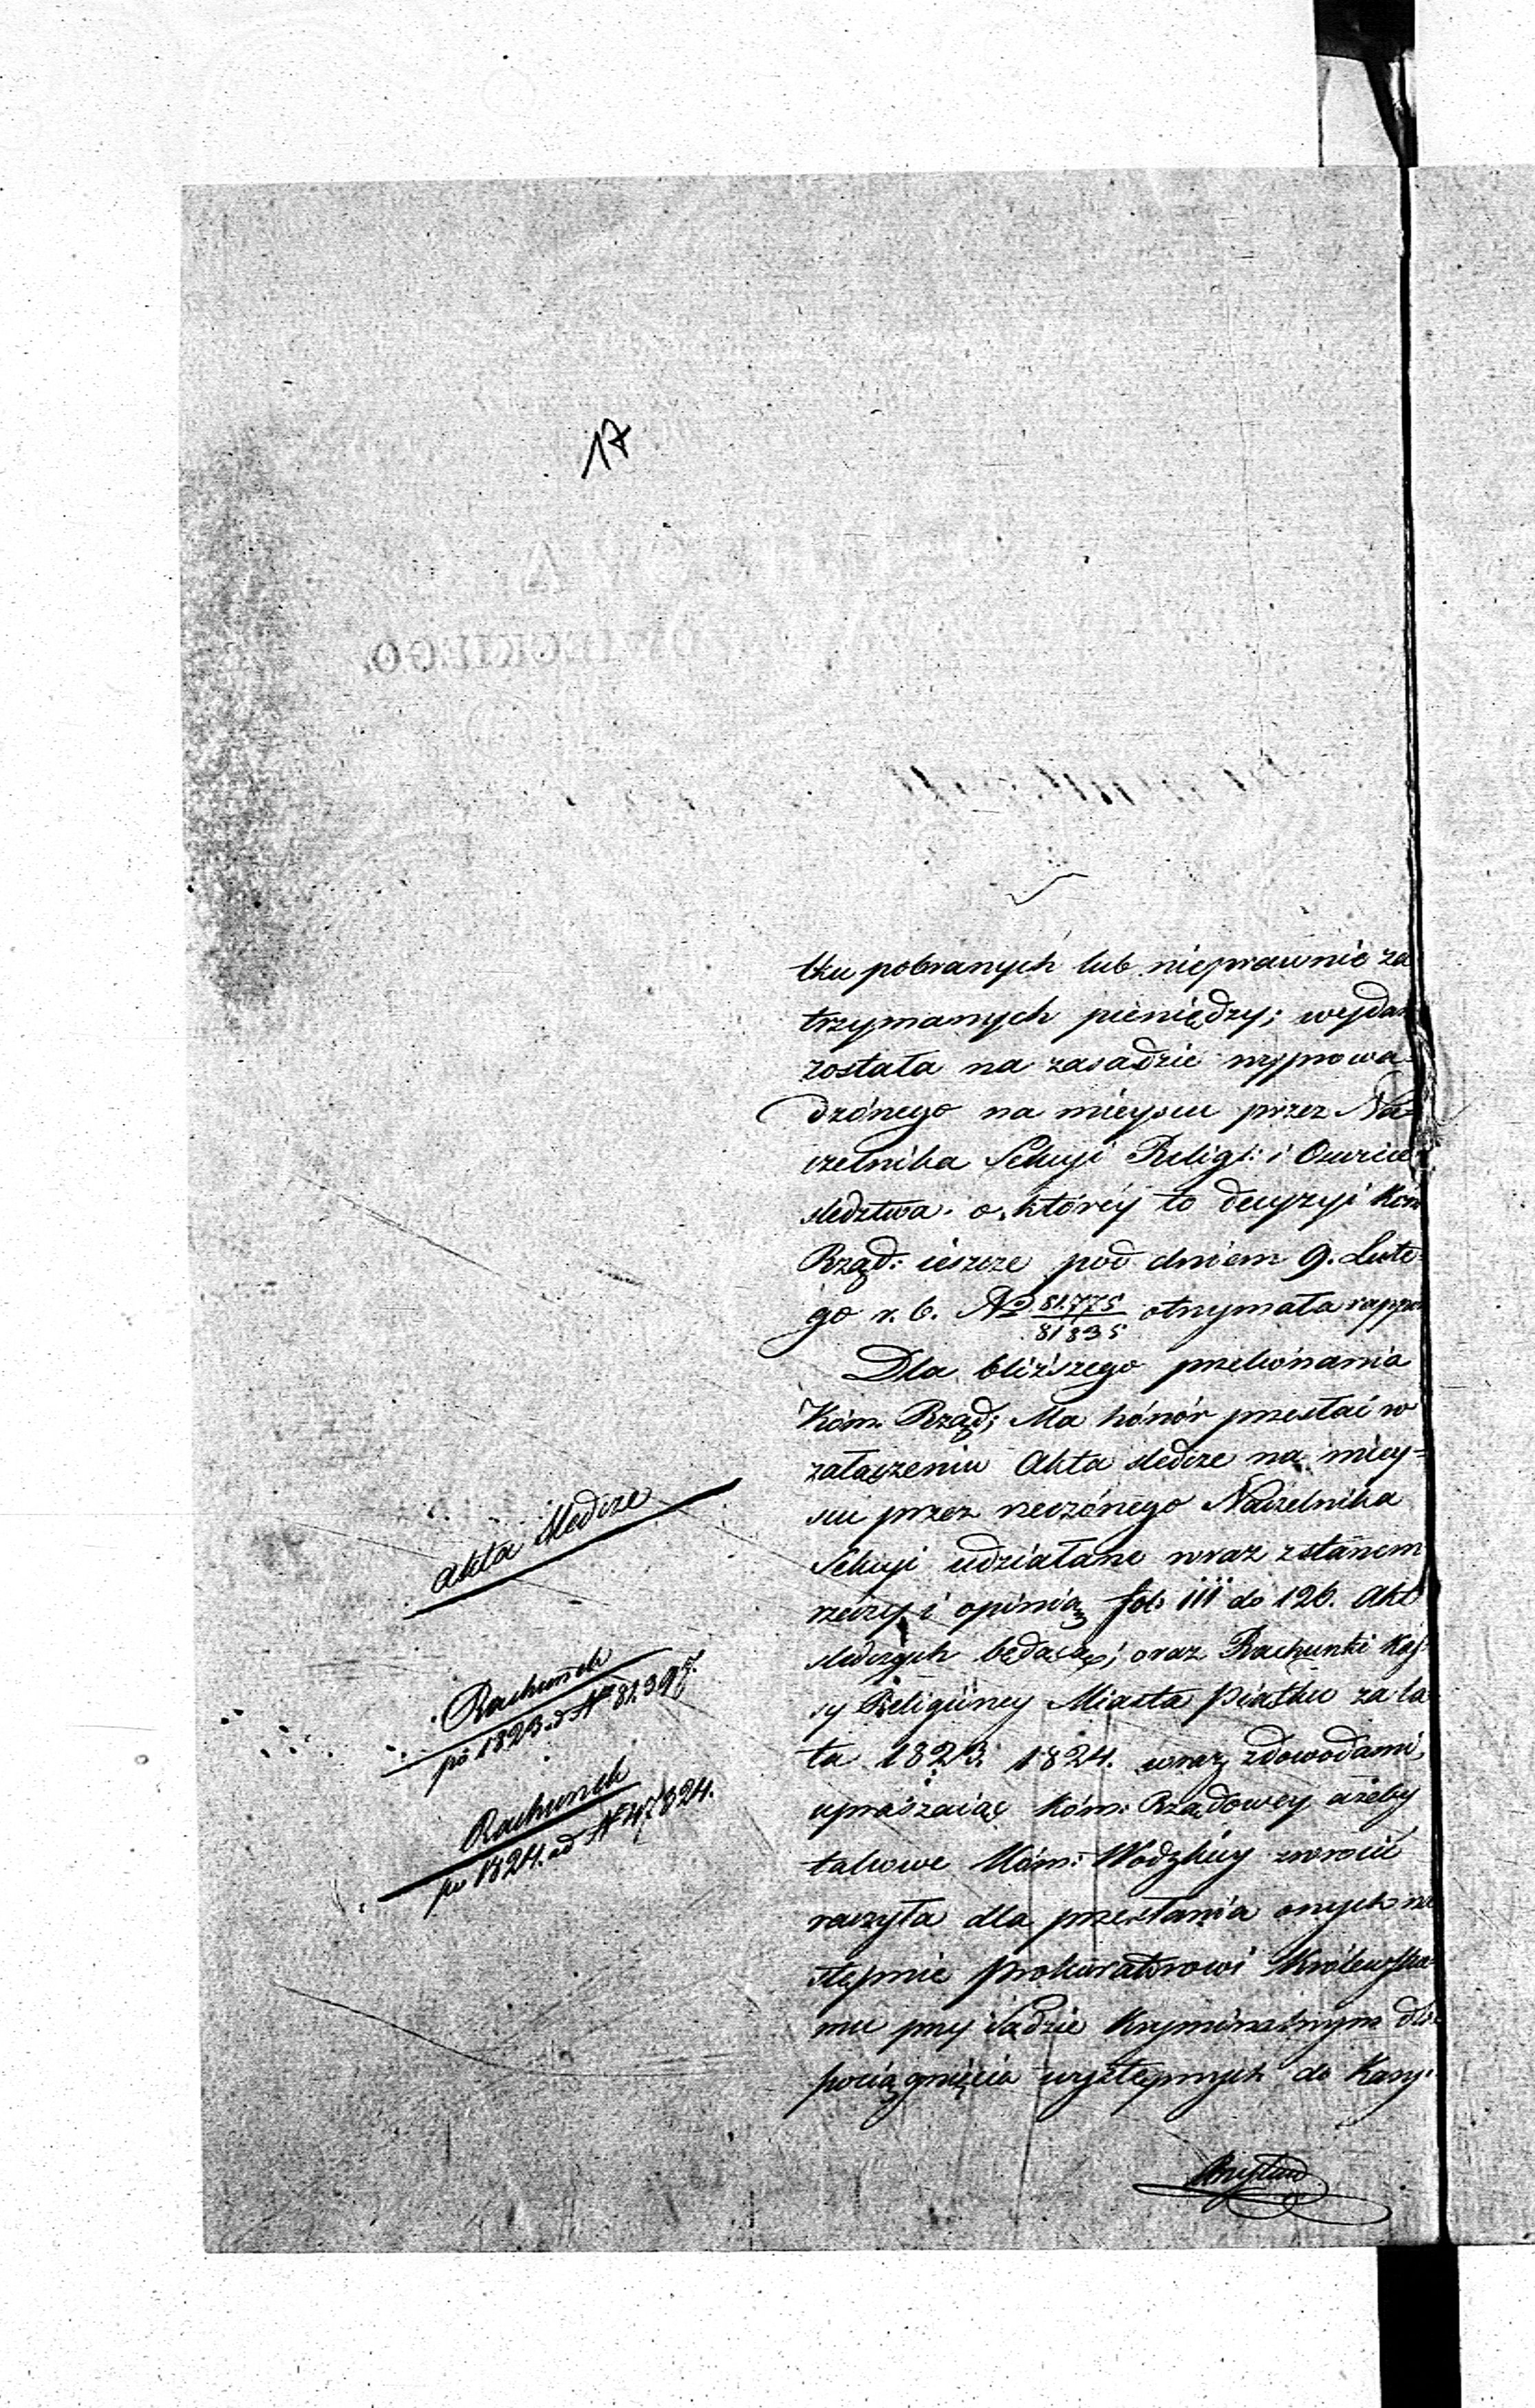 17
tku pobranych lub nieprawnie za
trzymanych pieniędzy; weydan
została na zasadzie wyprowa=
dzónego na mieyscu przez Na=
czelnika Sekcyi Religi: i Oswiec
sledztwa. o którey to decyzyi Kóm
Rząd: ieszcze pod dniem 9. Lute=
go r. b. No 81.775/81835 otrzymała rappo
Dla bliższego przekónania
Kóm. Rząd; Ma hónór przesłać w
załączeniu Akta sledcze na miey=
scu przez rzeczónego Naczelnika
Sekcyi udziałane wraz z stanem
rzeczy i opinią fol: 111 do 126. Akt
sledczych będącą; oraz Rachunki Kas
sy Religiiney Miasta Piątku za la
ta 1823. 1824. wraz zdowodami,
upraszaiąc Kóm: Rządowey ażeby
takowe Kóm: Wodzkiey zwrócić
raczyła dla przesłania onych na
stępnie Prokuratorowi Królewskie=
mu przy Sądzie Kryminalnym dla
pociągnięcia występnych do Kary.
Akta sledcze
Rachunek
pō 1823. d No 81.397.
Rachunek
po 1824. ad No 47824.